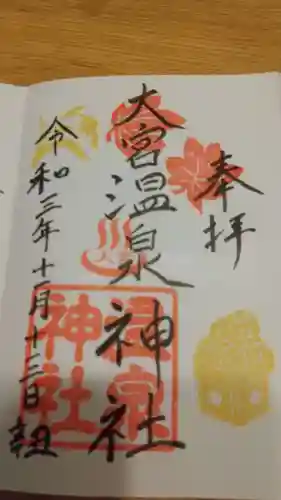 奉拝
大宮温泉神社
温泉神社
令和三年十一月十三日